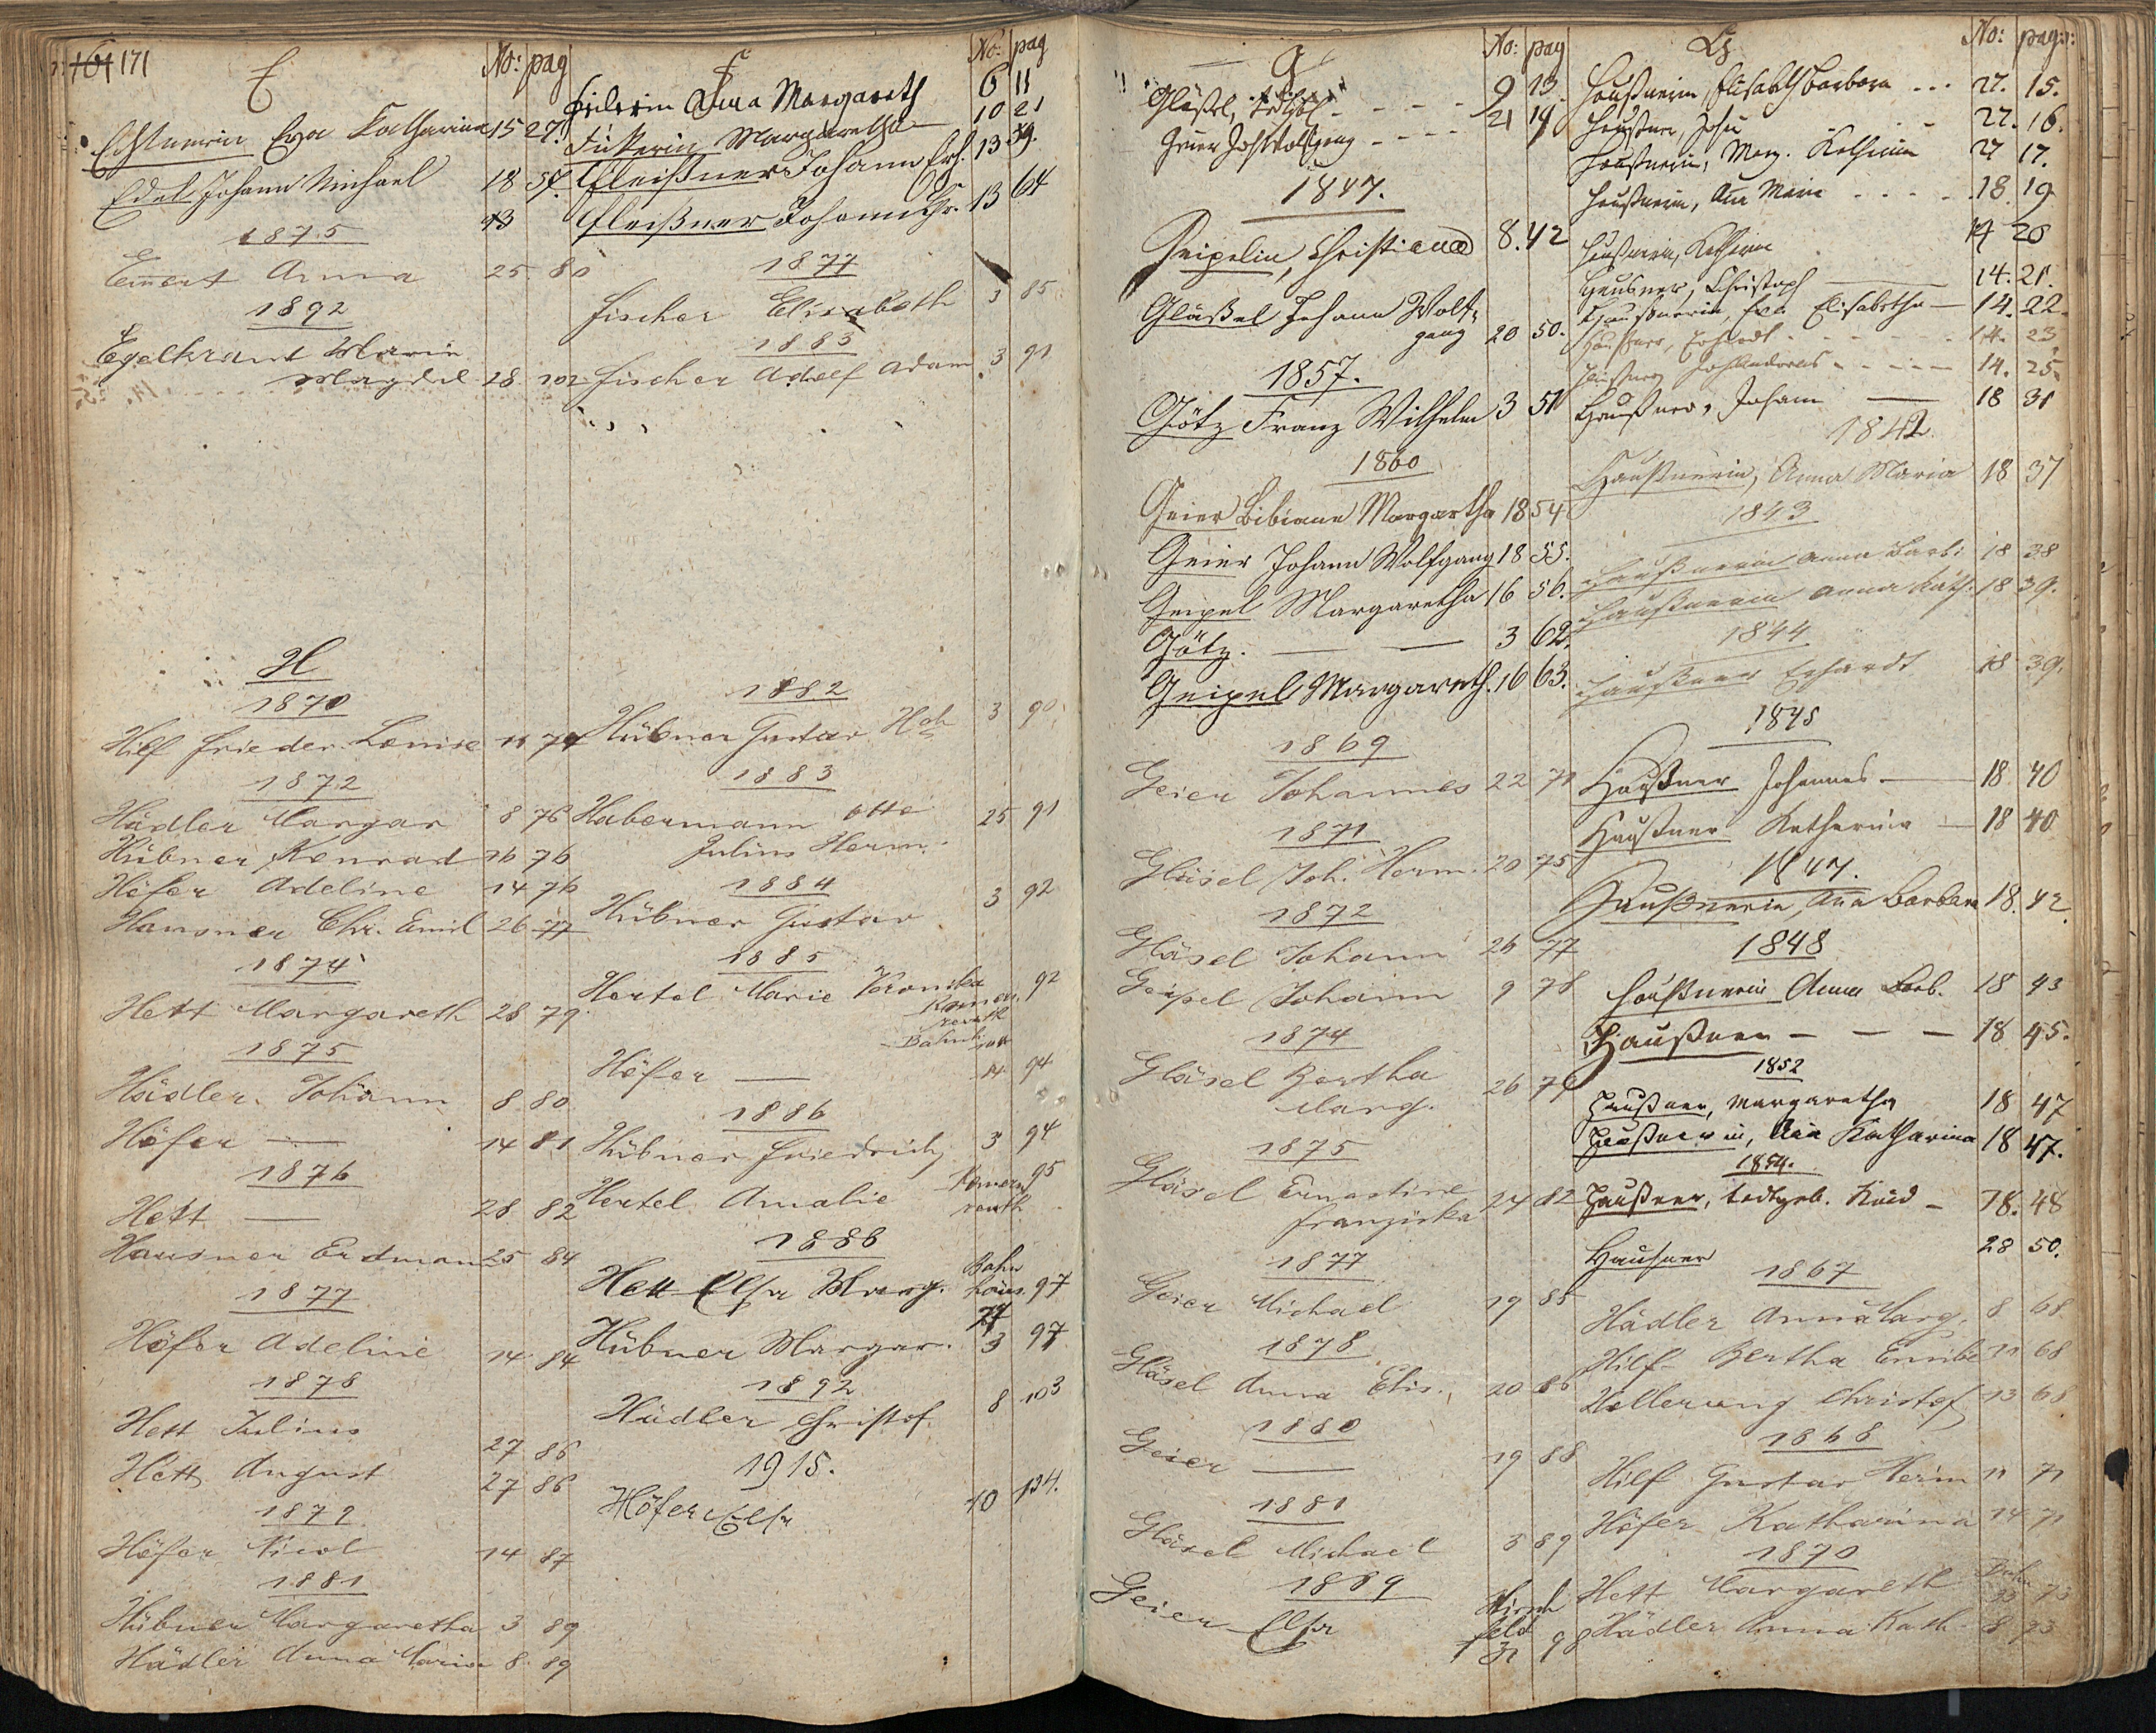 161 171
E No: pag
Eva Katharina 15 27.
Edel Johann Michael 18 57.
13
1875
Em̄ert Anna 25. 80
1892
Egelkraut Marie
Magdal. 28. 102.
H
1870
Hilf Frieder. Louise 11 74
1872
Hädler Margar 8 76
Hübner Konrad 16 76
Höfer Adeline 14 76
Hausner Chr. Emil 26 77
1874
Hett Margareth 28 79.
1875
Hädler Johann 8 80
Höfer — 14 81
1876
Hett — 28 82
Hausner Erdman 25 84
1877
Höfer Adeline 14 84
1878
Hett Julius 27 86
Hett August 27 86
1879
Höfer Nicol 14 87
1881
Hübner Margaretha 3 89
Hädler Anna Maria 8. 89
F No: pag
Anna Margareth 6 11
Margaretha 10 21
Fleißner Johann Erh. 13 39.
Fleißner Johann Chr. 13 64
1877
Fischer Elisabeth 3 85
1883
Fischer Adolf Adam 3 91
1882
Hübner Gustav Hch 3 90
1883
Habermann Otto 25 91
Julius Herm.
1884
Hübner Gustav 3 92
1885
Hertel Marie Veronika 92
Höfer — 14 94
1886
Hübner Friedrich 3 94
Hertel Amalie 95
1888
Hett Elsa Marg. 97
Hübner Margar. 3 97
1892
Hädler Christof 8 103
1915.
Höfer Elsa 10 134.
G No: pag
Gläßel, 9 13.
Geier Joh Wolfgang - - - 21 19
1847.
Geipelin, Christiana 8. 42
Gläßel Johann Wolf-
gang 20 50.
1857.
Götz Franz Wilhelm 3 51
1860
Geier Bibiana Margartha 18 54
Geier Johann Wolfgang 18 55.
Geipel Margaretha 16 56.
Götz. — — 3 62.
Geipel Margareth. 16 63.
1869
Geier Johannes 22 71
1871
Gläsel Joh. Herm. 20 75
1872
Gläsel Johann 26 77
Geipel Johann 9 78
1874
Gläsel Bertha 26 79
Marg.
1875
Gläsel Ernestine
Franziska 24 82
1877
Geier Michael 19 85
1878
Gläsel Anna Elis. 20 86
1880
Geier — 19 88
1881
Gläsel Michael 5 89
1889
Geier Elsa Hirsch
feld
31 98
H No: pag:
Haußnerin, Elisabeth Barbara - - - 27. 15.
Haußner, Joh. 27. 16.
Haußnerin, Marg. Katharina 27 17.
Haußnerin, Ana Maria - - - - 18. 19
Haußnerin, Katharina 14 20
Haußner, Christoph 14. 21.
Haußnerin, Eva Elisabetha — 14. 22.
Haußner, Erhardt - - - - 14. 23
Haußner Joh Andreas - - - 14. 25.
Haußner, Johann — 18 31
1842.
Haußnerin, Anna Maria 18 37
1843
Haußnerin Anna Barb: 18 38
Haußnerin Anna Kath. 18 39.
1844
Haußner Erhardt 18 39.
1845
Haußner Johannes — 18. 40
Haußner Katharina — 18 40
1847.
Haußnerin, Ana Barbara 18. 42.
1848
Haußnerin Anna Barb. 18 43
Haußner — — — 18 45.
1852
Haußner, Margaretha 18 47
Haußnerin, Ana Katharina 18 47.
1854.
Haußner, todtgeb. Kind — 18. 48
Haußner 28 50.
1867
Hädler Anna Marg. 8 68
Hilf Bertha 11 68
Christof 13 68
1868
Hilf Gustav Herm 11 71
Höfer Katharina 14 71
1870
Hett Margareth 73
Hädler Anna Kath. 8 73